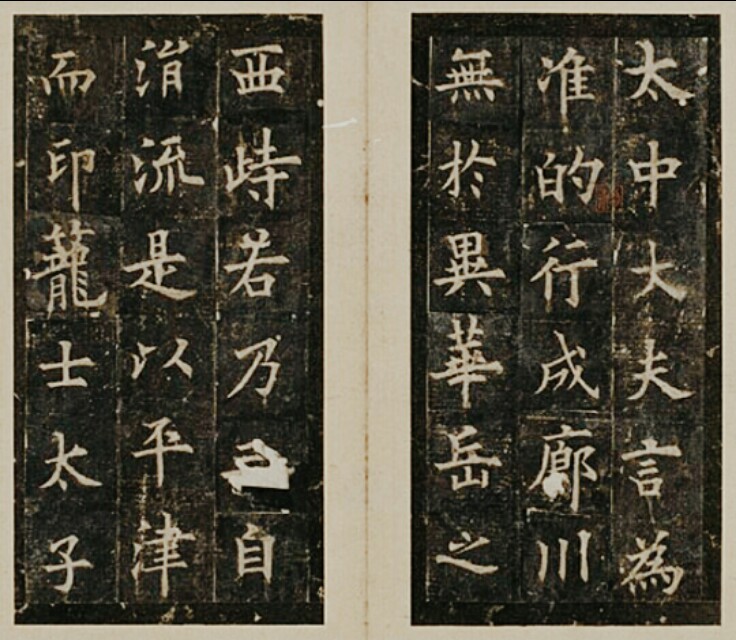 太中大夫言為
准的行成廊川
無於異華岳之
西峙若乃自
渭流是以平津
而印蘢士太子